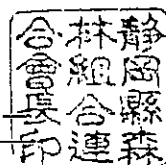 静岡縣森
林組合連
合會長印